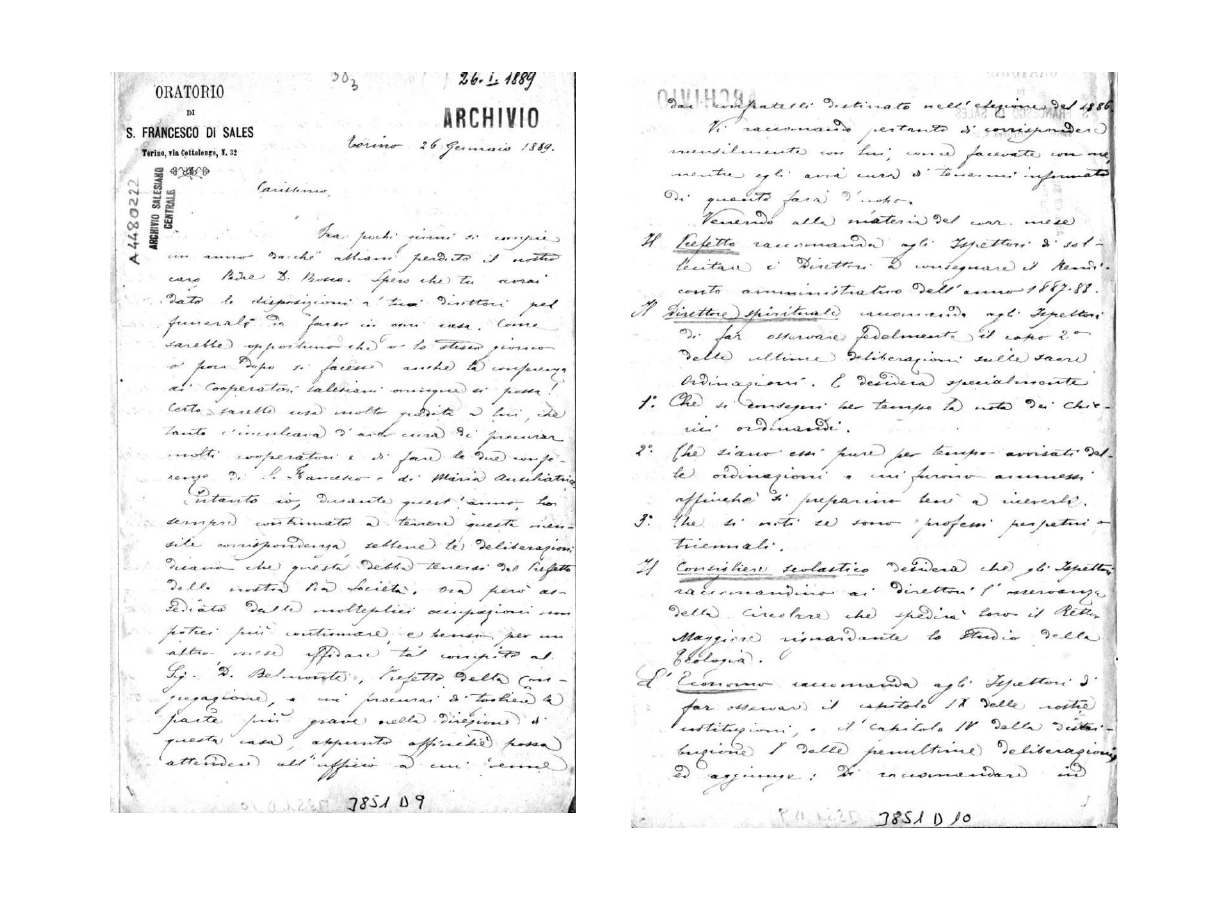 303
26.I.1889
ORATORIO
DI
S. FRANCESCO DI SALES
Torino, via Cottolengo, N. 32
ARCHIVIO
Torino 26 Gennaio 1889.
A4480222
ARCHIVIO SALESIANO
CENTRALE
Carissimo,
Fra pochi giorni si compie
un anno dacchè abbiam perduto il nostro
caro Padre D. Bosco. Spero che tu avrai
dato le disposizioni a' tuoi direttori pel
funerale da farsi in ogni casa. Come
sarebbe opportuno che o lo stesso giorno
o poco dopo si facesse anche la conferenza
ai Cooperatori salesiani ovunque si possa!
Certo sarebbe cosa molto gradita a lui, che
tanto c'inculcava d'aver cura di procurar
molti cooperatori e di fare le due confe-
renze di S. Francesco e di Maria Ausiliatrice
Intanto io, durante quest'anno, ho
sempre continuato a tenere questa men-
sile corrispondenza, sebbene le deliberazioni
dicano che questa debba tenersi dal Prefetto
della nostra Pia Società. Ora però as-
sediato dalle molteplici occupazioni non
potrei più continuare, e penso per un
altro mese affidare tal compito al
Sig. D. Belmonte, Prefetto della Con-
gregazione, a cui procurai di togliere la
parte più grave nella direzione di
questa casa, appunto affinchè possa
attendere all'ufficio a cui venne
3851 D 9
dai confratelli destinato nell'elezione del 1886
Vi raccomando pertanto di corrispondere
mensilmente con lui, come facevate con me,
mentre egli avrà cura di tenermi informato
di quanto farà d'uopo.
Venendo alla materia del corr. mese
Il Prefetto raccomanda agli Ispettori di sol-
lecitare i Direttori a consegnare il Rendi-
conto amministrativo dell'anno 1887-88.
Il Direttore spirituale raccomanda agli Ispettori
di far osservare fedelmente il capo 2°
delle ultime deliberazioni sulle sacre
Ordinazioni. E desidera specialmente
1°. Che si consegni per tempo la nota dei chie-
rici ordinandi.
2° Che siano essi pure per tempo avvisati del-
le ordinazioni a cui furono ammessi
affinchè si preparino bene a riceverle.
3° Che si noti se sono professi perpetui o
triennali.
Il Consigliere scolastico desidera che gli Ispettori
raccomandino ai direttori l'osservanza
della Circolare che spedirà loro il Rettor
Maggiore riguardante lo studio della
Teologia.
L'Economo raccomanda agli Ispettori di
far osservare il capitolo IX delle nostre
costituzioni, e il Capitolo IV della Distri-
buzione I delle penultime deliberazioni,
ed aggiunge: Di raccomandare
3851 D 10